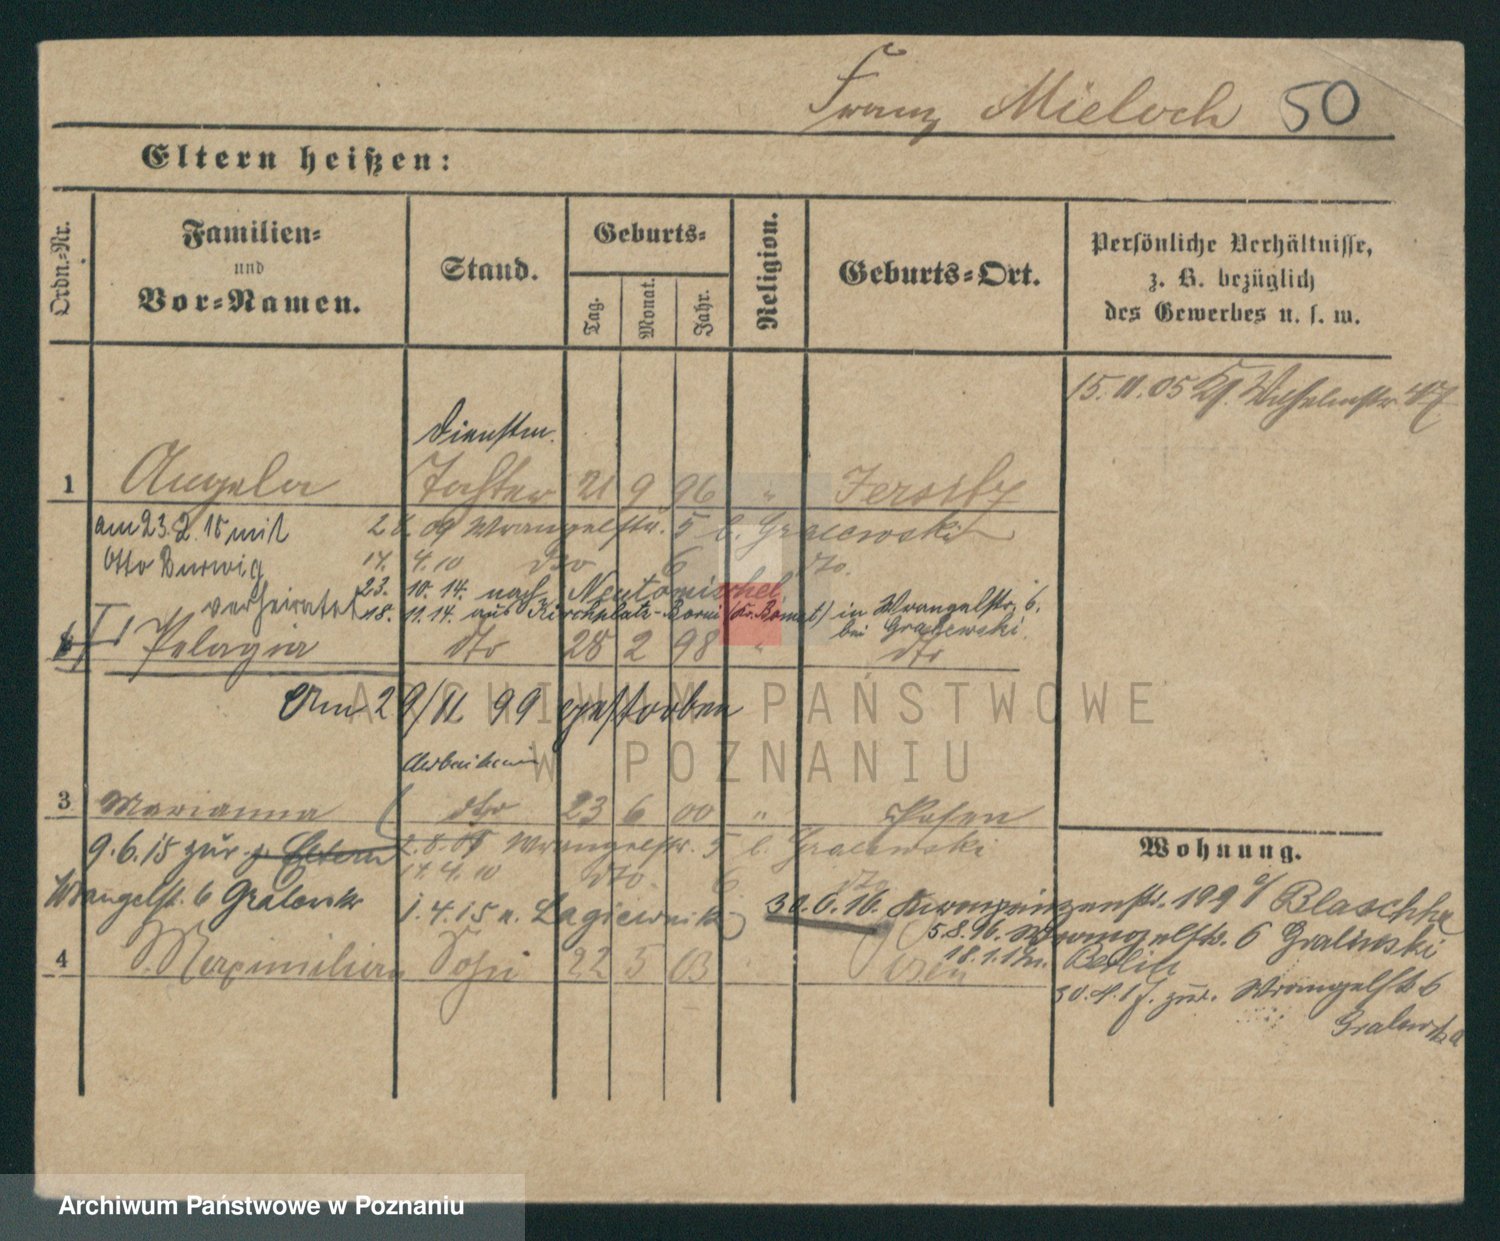 Franz Mieloch 50
Eltern heißen:
Ordn.-Nr.
Familien-
und
Vor-Namen.
Stand.
Geburts-
Tag.
Monat.
Jahr.
Religion.
Geburts-Ort.
Persönliche Verhältnisse,
z. B. bezüglich
des Gewerbes u. s. w.
15. 11. 05 Wilhelmstr. 47
Dienstm.
1 Angela Tochter 21 9 96 " Jersitz
am 23. 2. 15 mit
Otto Burwig
verheiratet
09 Wrangelstr. 5 b. Gralewski
14. 4. 10 dto 6 dto.
23. 10. 14. nach Neutomischel
18. 11. 14. aus Kirchplatz-Borui (Kr. Bomst) in Wrangelstr. 6.
bei Gralewski.
Pelagia dto 28 2 98 " dto
Am 29/11. 99 gestorben
Arbeiterin
3 Marianna dto 23 6 00 " Posen
9. 6. 15 zur. z. Eltern
2. 8. 09 Wrangelstr. 5 b. Gralewski
14. 4. 10 dto. 6 dto
Wrangelst. 6 Gralewski
1. 4. 15 n. Lagiewnik
Wohnung.
30. 6. 16. Kronprinzenstr. 199 b/ Blaschke
5. 8. 16. Wrangelstr. 6 Gralewski
18. 1. 17 n. Berlin
30. 4. 17. zur. Wrangelstr 6
Gralewska
4 Maximilian Sohn 22 5 03 Posen
ARCHIWUM PAŃSTWOWE
W POZNANIU
Archiwum Państwowe w Poznaniu